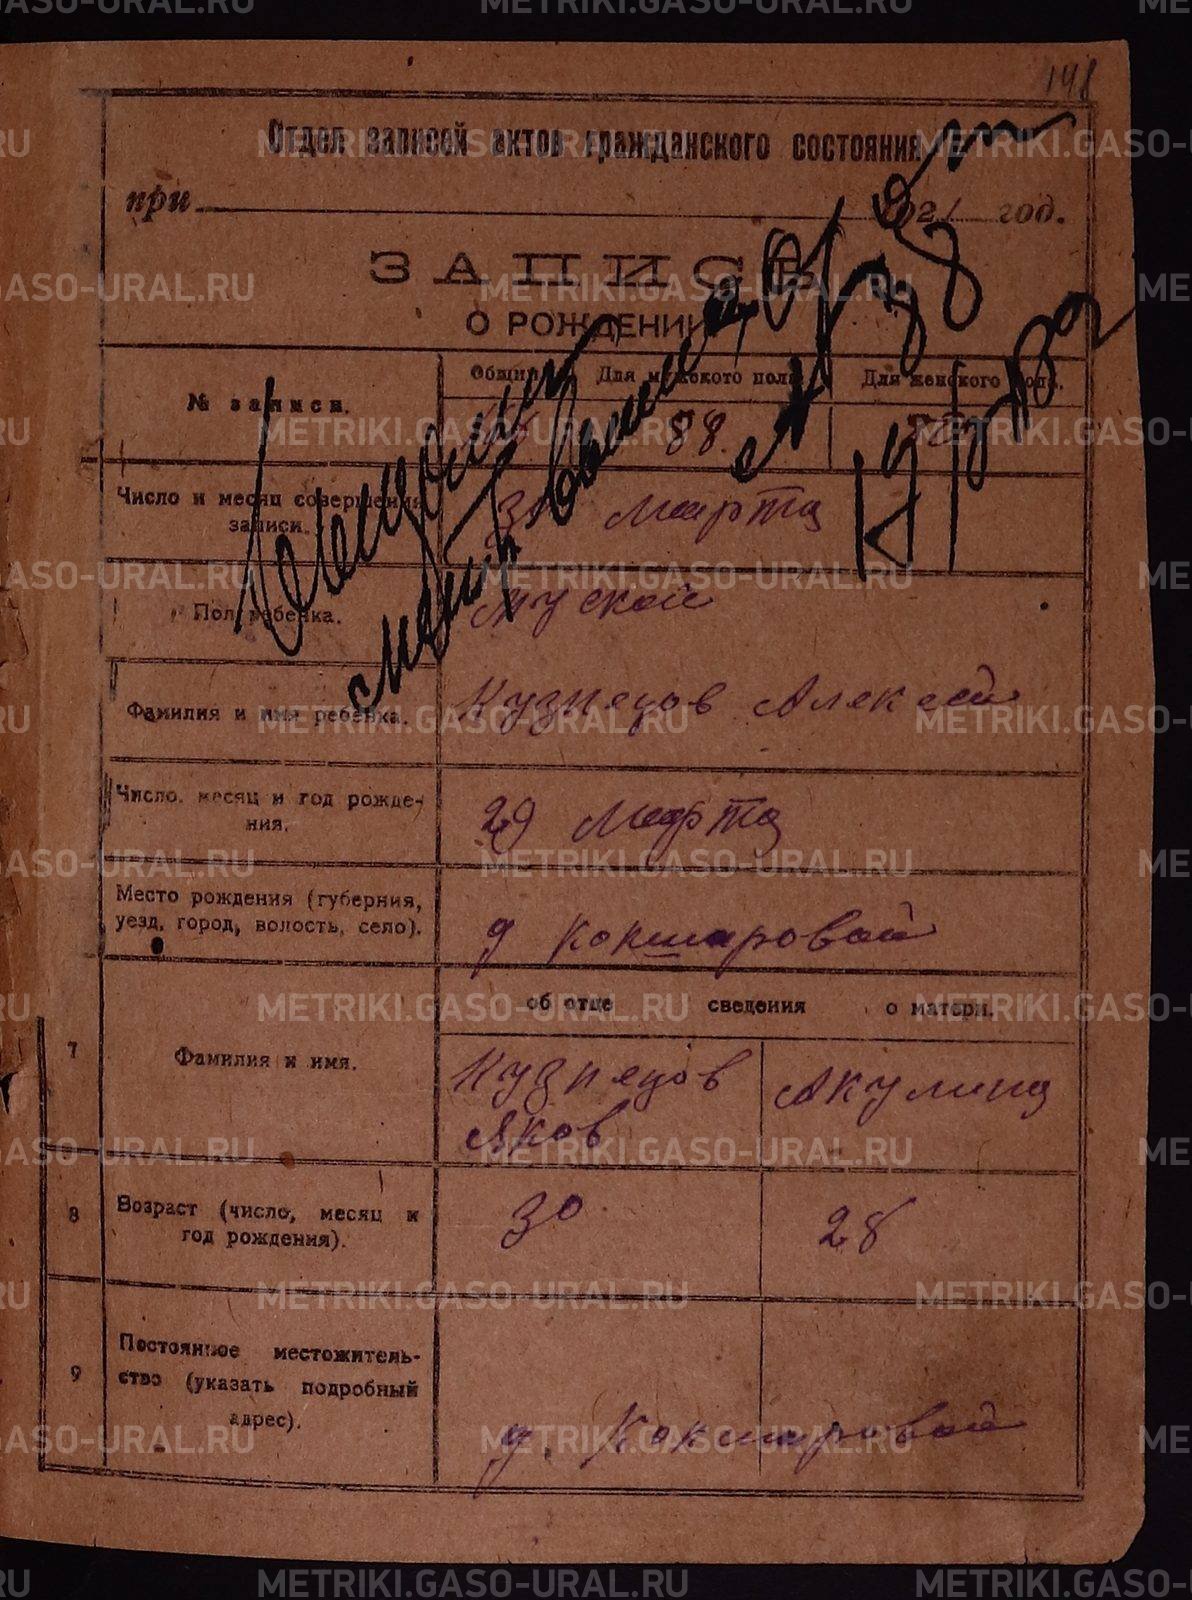 148
Отдел записей актов гражданского состояния
при 1921 год.
ЗАПИСЬ
О РОЖДЕНИИ
№ записи.
Общий Для мужского пола Для женского пола.
88.
Число и месяц совершения записи.
30 Марта
Пол ребенка.
Муской
Фамилия и имя ребенка.
Кузнецов Алексей
Число, месяц и год рожде-
ния.
29 Марта
Место рождения (губерния,
уезд, город, волость, село).
д Кокшаровой
об отце сведения о матери.
7 Фамилия и имя.
Кузнецов Акулина
Яков
8 Возраст (число, месяц и
год рождения).
30 28
9 Постоянное местожитель-
ство (указать подробный
адрес).
д. Кокшаровой
METRIKI.GASO-URAL.RU